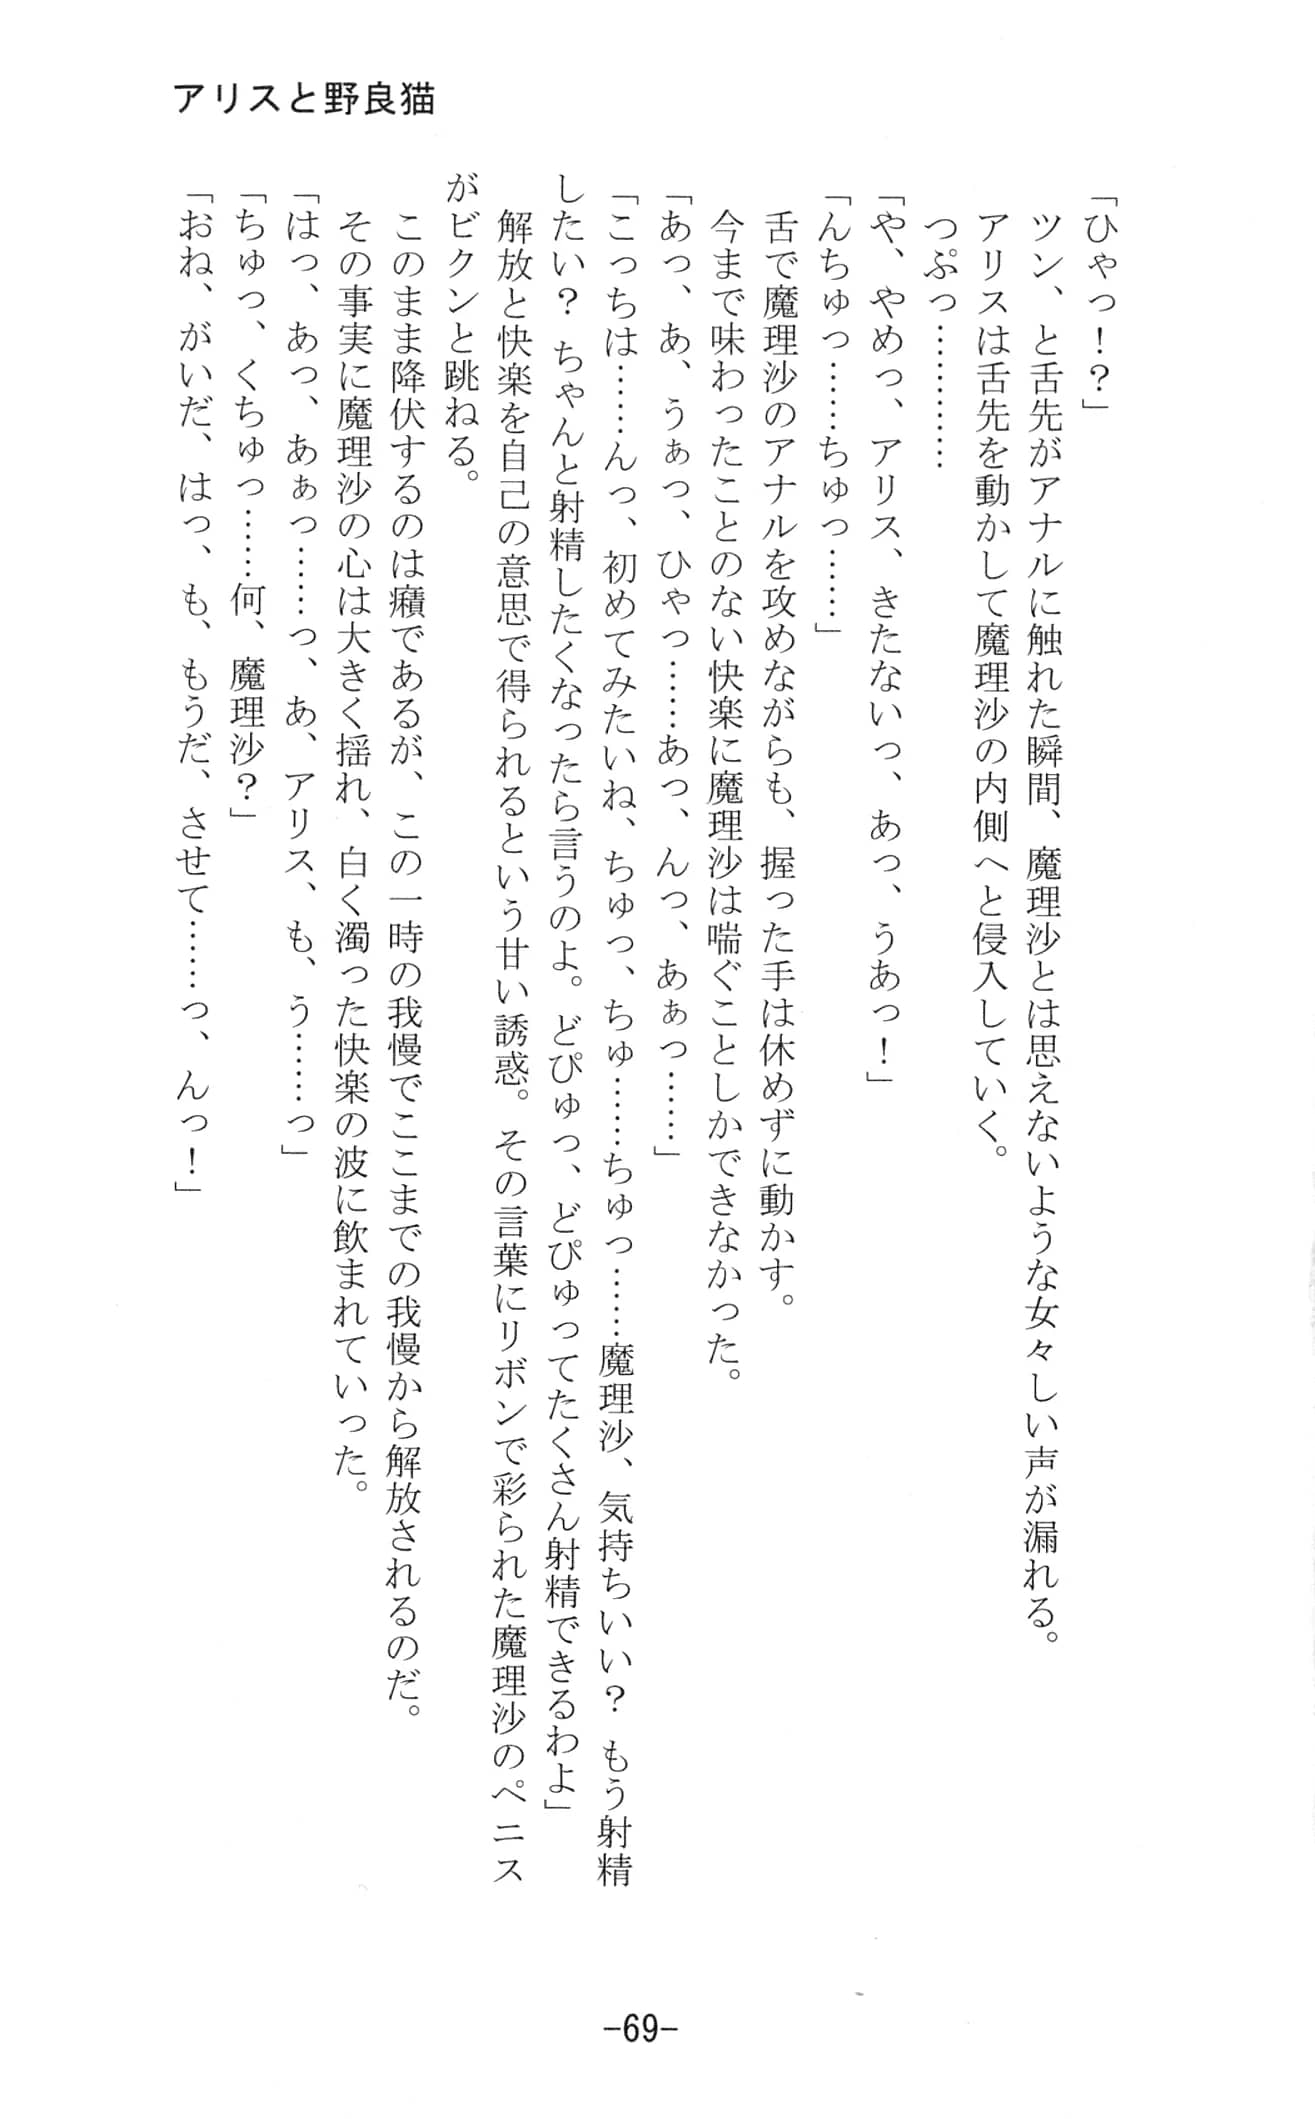 アリスと野良猫
「ひゃっ！？」
ツン、と舌先がアナルに触れた瞬間、魔理沙とは思えないような女々しい声が漏れる。
アリスは舌先を動かして魔理沙の内側へと侵入していく。
つぷっ…………
「や、やめっ、アリス、きたないっ、あっ、うあっ！」
「んちゅっ……ちゅっ……」
舌で魔理沙のアナルを攻めながらも、握った手は休めずに動かす。
今まで味わったことのない快楽に魔理沙は喘ぐことしかできなかった。
「あっ、あ、うぁっ、ひゃっ……あっ、んっ、あぁっ……」
「こっちは……んっ、初めてみたいね、ちゅっ、ちゅ……ちゅっ……魔理沙、気持ちいい？ もう射精
したい？ ちゃんと射精したくなったら言うのよ。どぴゅっ、どぴゅってたくさん射精できるわよ」
解放と快楽を自己の意思で得られるという甘い誘惑。その言葉にリボンで彩られた魔理沙のペニス
がビクンと跳ねる。
このまま降伏するのは癪であるが、この一時の我慢でここまでの我慢から解放されるのだ。
その事実に魔理沙の心は大きく揺れ、白く濁った快楽の波に飲まれていった。
「はっ、あっ、あぁっ……っ、あ、アリス、も、う……っ」
「ちゅっ、くちゅっ……何、魔理沙？」
「おね、がいだ、はっ、も、もうだ、させて……っ、んっ！」
-69-